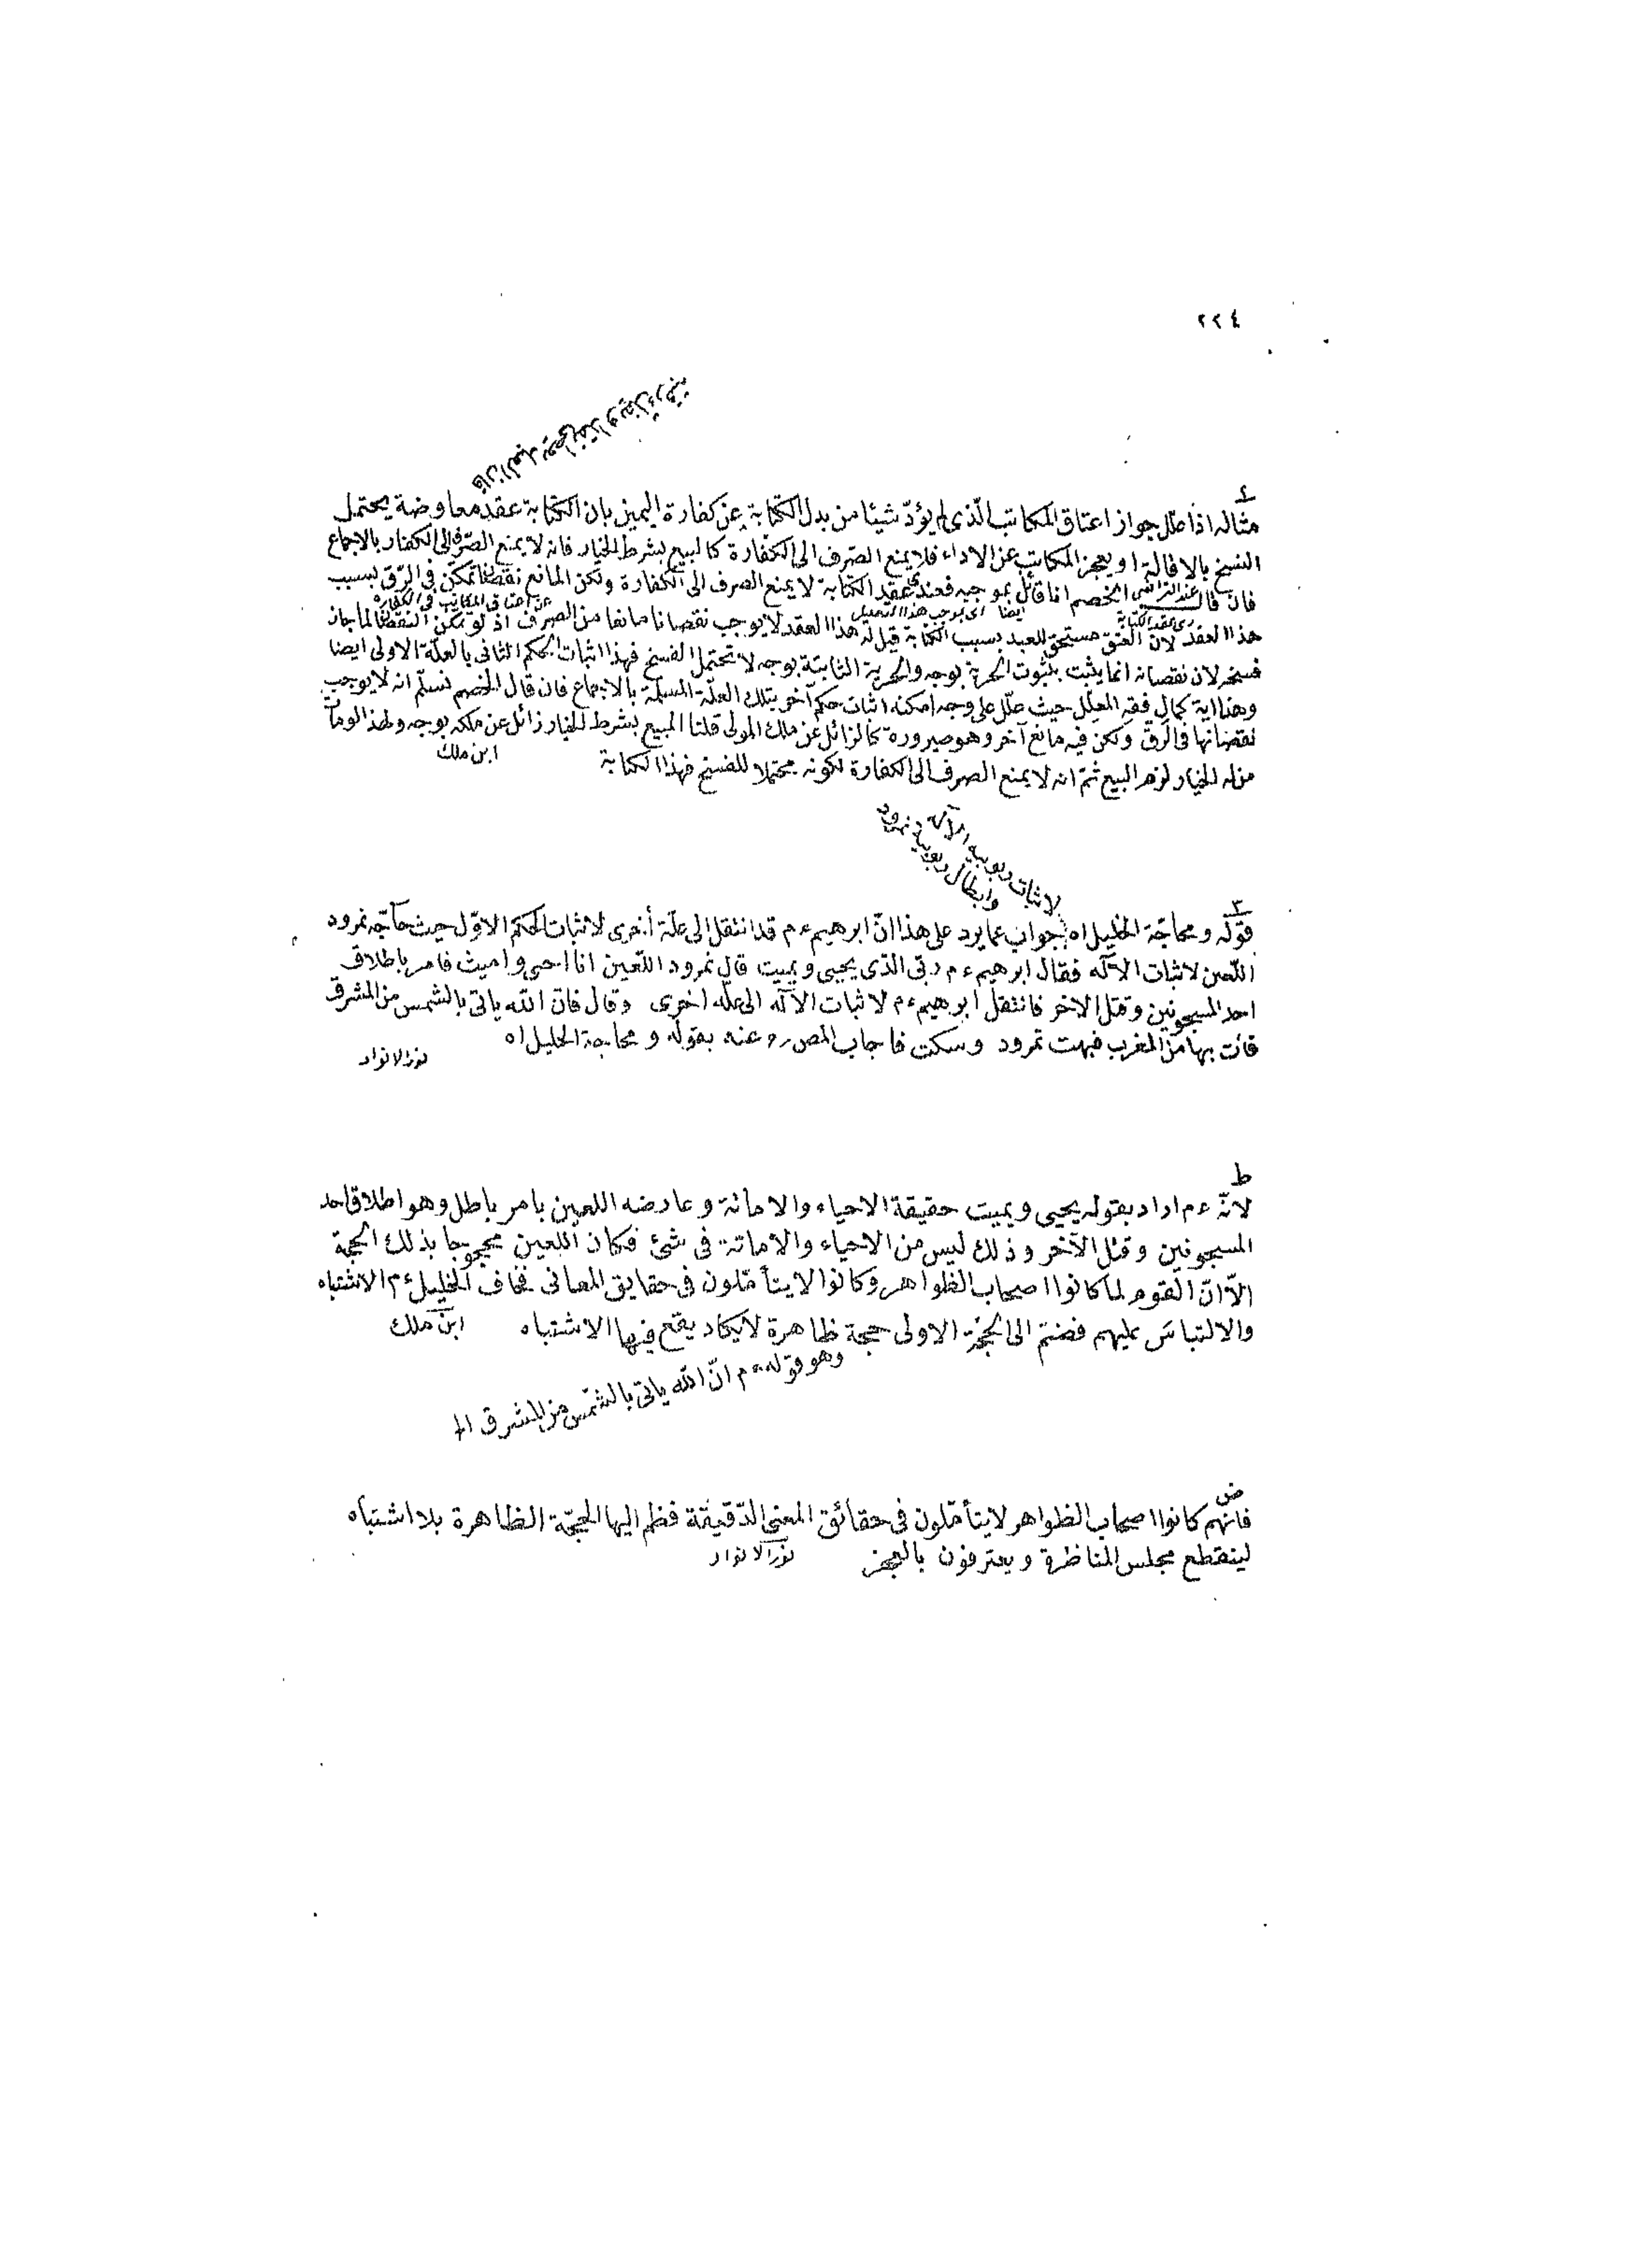 ٢٢٤
٤
مثاله اذا علل جواز اعتاق المكاتب الّذى لم يؤدّ شيئا من بدل الكتابة عن كفارة اليمين بان الكتابة عقد معاوضة يحتمل
الفسخ بالاقالة او بعجز المكاتب عن الاداء فلا يمنع الصرف الى الكفارة كالبيع بشرط الخيار فانه لا يمنع الصرف الى الكفارة بالاجماع
عند التراضى
فان قال الخصم انا قائل بموجبه فعندى عقد الكتابة لا يمنع الصرف الى الكفارة ولكن المانع نقصان تمكّن فى الرّقّ بسبب
اى عقد الكتابة
ايضا اى بموجب هذا التعليل
عن اعتاق المكاتب فى الكفارة
هذا العقد لانّ العتق مستحق للعبد بسبب الكتابة قيل له هذا العقد لا يوجب نقصانا مانعا من الصرف اذ لو تمكن النقصان لما جاز
فسخه لان نقصانه انما يثبت بثبوت الحرية بوجه والحرية الثابتة بوجه لا تحتمل الفسخ فهذا اثبات الحكم الثانى بالعلّة الاولى ايضا
وهذا اية كمال فقه المعلّل حيث علّل على وجه امكنه اثبات حكم آخر بتلك العلّة المسلّمة بالاجماع فان قال الخصم نسلّم انه لا يوجب
نقصانها فى الرّقّ ولكن فيه مانع آخر وهو صيرورة كالزائل عن ملك المولى قلنا المبيع بشرط الخيار زائل عن ملكه بوجه ولهذا لو مات
من له الخيار لزم البيع ثمّ انه لا يمنع الصرف الى الكفارة لكونه محتملا للفسخ فهذا الكتابة
ابن ملك
لاثبات ربوبية الآله
وابطال ربوبية نمرود
٣
قوله ومحاجّة الخليل اه جواب عما يرد على هذا انّ ابرهيم ءم قد انتقل الى علّة أخرى لاثبات الحكم الاوّل حيث حآجّه نمرود
اللّعين لاثبات الآله فقال ابرهيم ءم ربّى الذى يحيى ويميت قال نمرود اللّعين انا احيى واميت فامر باطلاق
احد المسجونين وقتل الاخر فانتقل ابرهيم ءم لاثبات الآله الى علّه اخرى وقال فان الله ياتى بالشمس من المشرق
فأت بها من المغرب فبهت نمرود وسكت فاجاب المص ره عنه بقوله ومحاجة الخليل اه
نور الانوار
ط
لانّه ءم اراد بقوله يحيى ويميت حقيقة الاحياء والاماتة وعارضه اللعين بامر باطل وهو اطلاق احد
المسجونين وقتل الآخر وذلك ليس من الاحياء والاماتة فى شئ فكان اللعين محجوجا بذلك الحجة
الاّ انّ القوم لما كانوا اصحاب الظواهر وكانوا لا يتأمّلون فى حقايق المعانى فخاف الخليل ءم الاشتباه
والالتباس عليهم فضمّ الى الحجّة الاولى حجة ظاهرة لا يكاد يقع فيها الاشتباه
ابن ملك
وهو قوله ءم انّ الله ياتى بالشّمس من المشرق الخ
ض
فانّهم كانوا اصحاب الظواهر لا يتأمّلون فى حقائق المعنى الدّقيقة فضم اليها الحجّة الظاهرة بلا اشتباه
لينقطع مجلس المناظرة ويعترفون بالعجز
نور الانوار